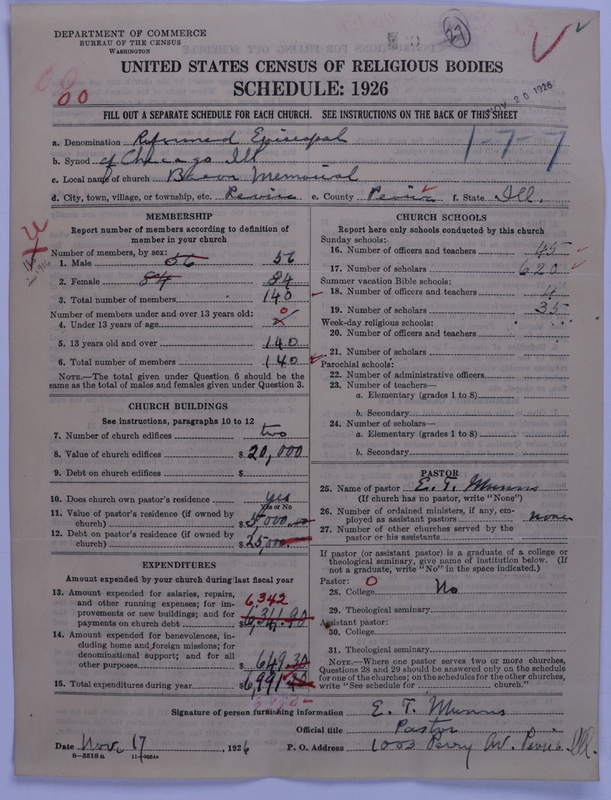 DEPARTMENT OF COMMERCE
BUREAU OF THE CENSUS
WASHINGTON
27
UNITED STATES CENSUS OF RELIGIOUS BODIES
SCHEDULE: 1926
NOV 20 1926
FILL OUT A SEPARATE SCHEDULE FOR EACH CHURCH. SEE INSTRUCTIONS ON THE BACK OF THIS SHEET
a. Denomination Reformed Episcopal
1-7-7
b. Synod of Chicago Ill
c. Local name of church Bacon Memorial
d. City, town, village, or township, etc. Peoria e. County Peoria f. State Ill.
MEMBERSHIP
Report number of members according to definition of member in your church
Number of members, by sex:
1. Male 56 56
2. Female 84 84
3. Total number of members 140
Number of members under and over 13 years old:
4. Under 13 years of age 0
5. 13 years old and over 140
6. Total number of members 140
NOTE.—The total given under Question 6 should be the
same as the total of males and females given under Question 3.
CHURCH BUILDINGS
See instructions, paragraphs 10 to 12
7. Number of church edifices two
8. Value of church edifices $20,000
9. Debt on church edifices $
10. Does church own pastor's residence yes
Yes or No
11. Value of pastor's residence (if owned by
church) $
12. Debt on pastor's residence (if owned by
church) $
EXPENDITURES
Amount expended by your church during last fiscal year
13. Amount expended for salaries, repairs,
and other running expenses; for im-
provements or new buildings; and for
payments on church debt $
6342
14. Amount expended for benevolences, in-
cluding home and foreign missions; for
denominational support; and for all
other purposes $649.30
15. Total expenditures during year $
CHURCH SCHOOLS
Report here only schools conducted by this church
Sunday schools:
16. Number of officers and teachers 45
17. Number of scholars 620
Summer vacation Bible schools:
18. Number of officers and teachers 4
19. Number of scholars 35
Week-day religious schools:
20. Number of officers and teachers
21. Number of scholars
Parochial schools:
22. Number of administrative officers
23. Number of teachers—
a. Elementary (grades 1 to 8)
b. Secondary
24. Number of scholars—
a. Elementary (grades 1 to 8)
b. Secondary
PASTOR
25. Name of pastor E. T. Munns
(If church has no pastor, write "None")
26. Number of ordained ministers, if any, em-
ployed as assistant pastors none
27. Number of other churches served by the
pastor or his assistants
If pastor (or assistant pastor) is a graduate of a college or
theological seminary, give name of institution below. (If
not a graduate, write "No" in the space indicated.)
Pastor: 0
28. College No
29. Theological seminary
Assistant pastor:
30. College
31. Theological seminary
NOTE.—Where one pastor serves two or more churches,
Questions 28 and 29 should be answered only on the schedule
for one of the churches; on the schedules for the other churches,
write "See schedule for church."
Signature of person furnishing information E. T. Munns
Official title Pastor
Date Nov 17, 1926 P. O. Address 1003 Perry Av. Peoria Ill.
8—5518a